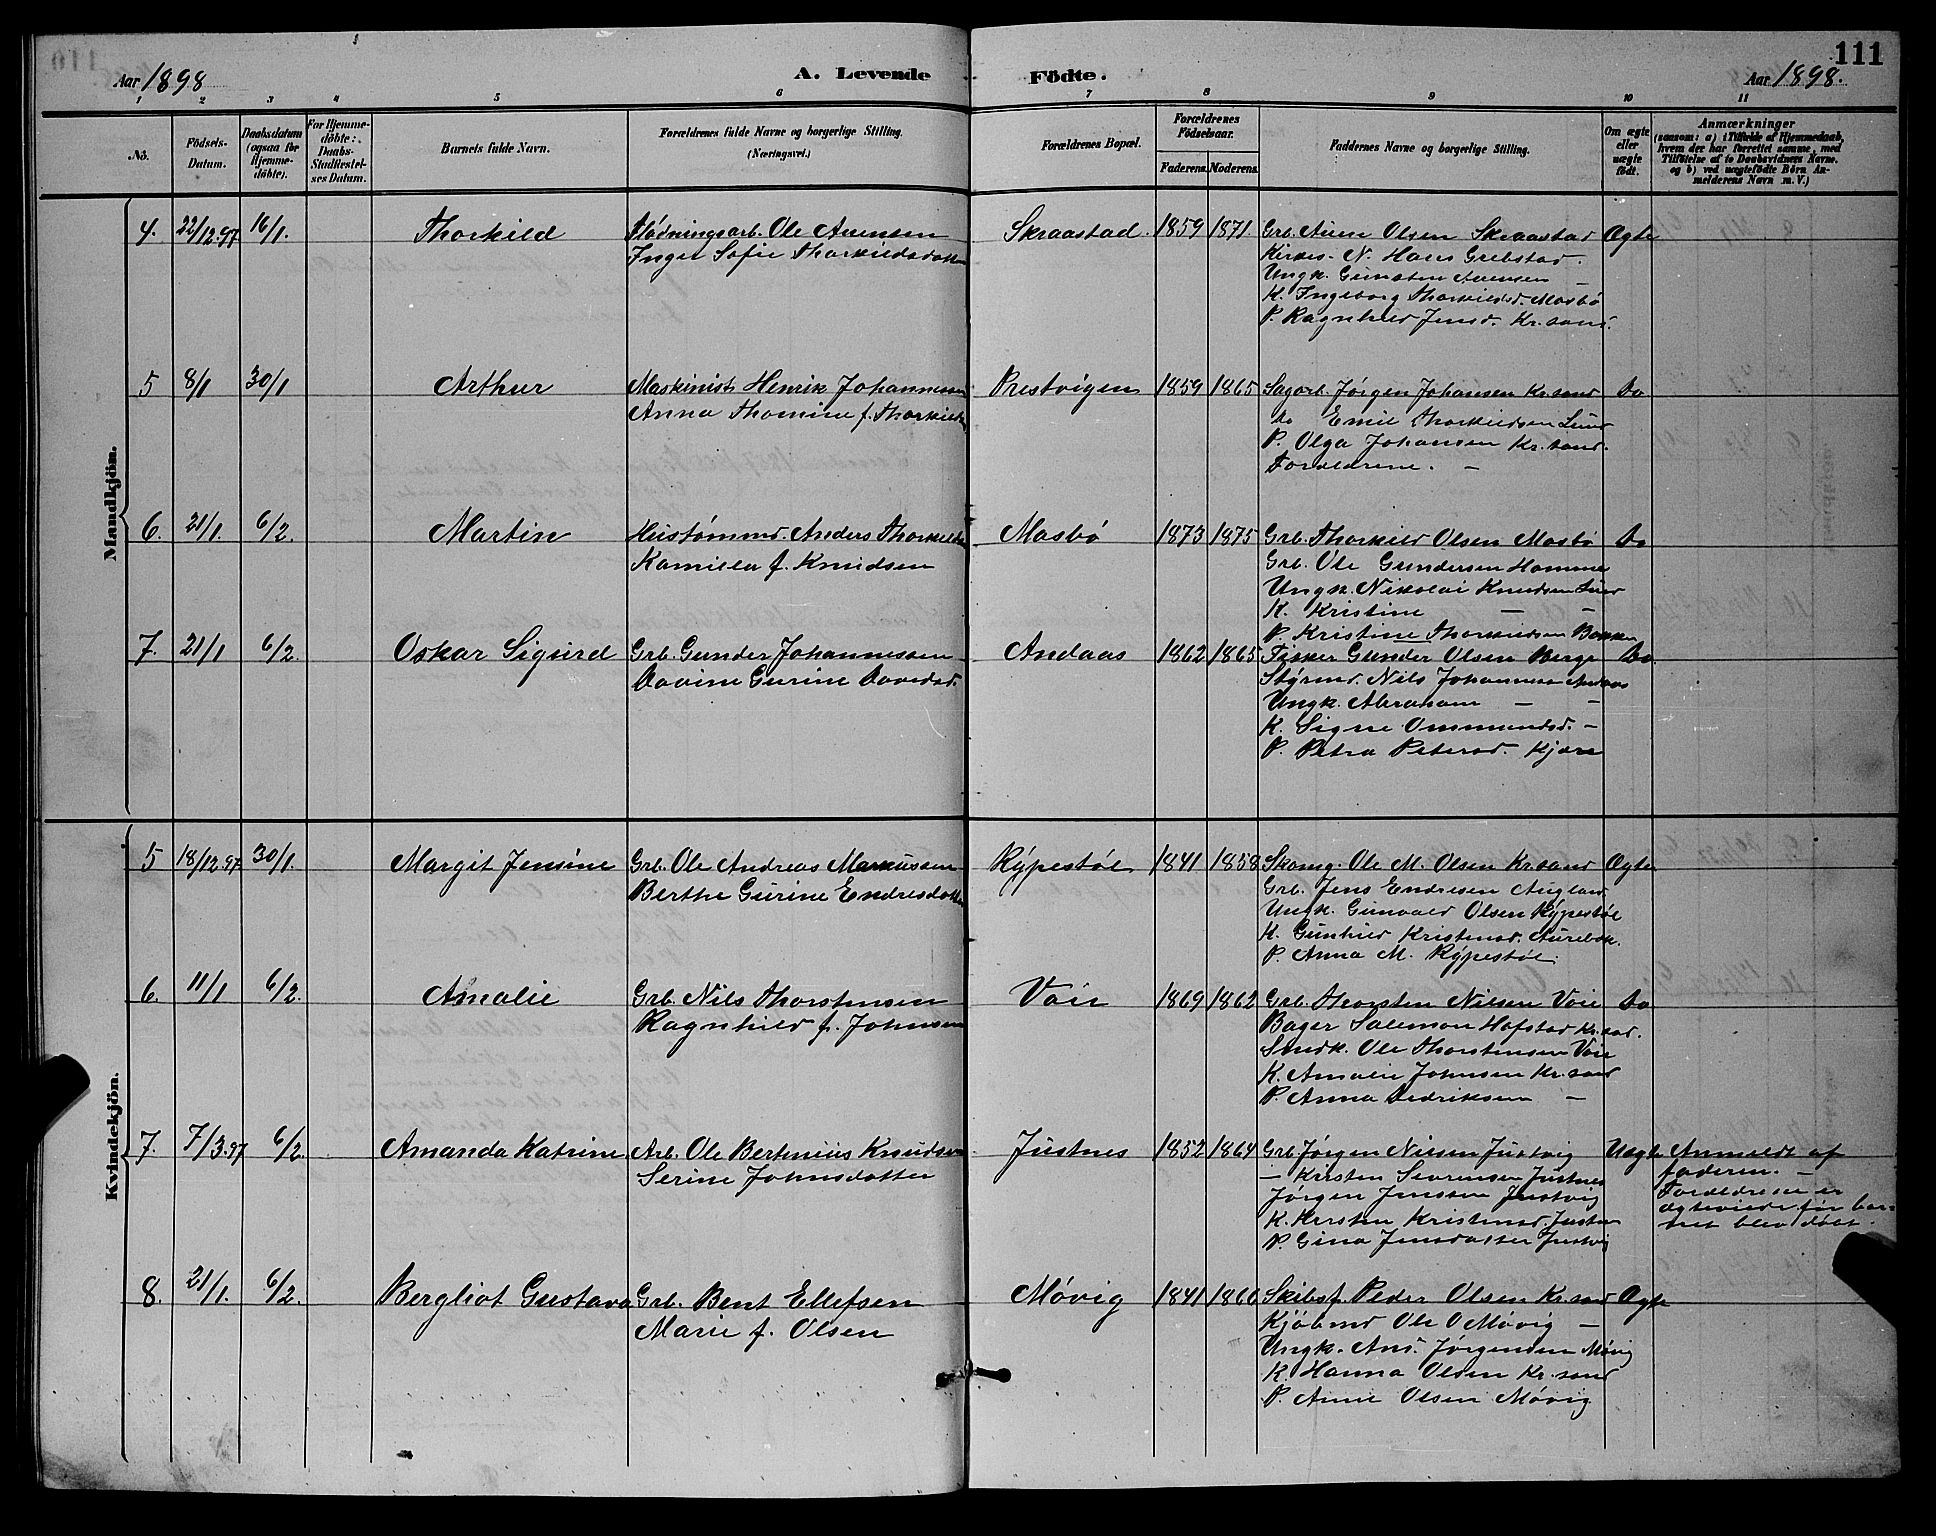 111
Aar 1898
A. Levende Födte.
Aar 1898.
1 2 3 4 5 6 7 8 9 10 11
No.
Födsels-Datum.
Daabsdatum (ogsaa for Hjemme-döbte).
For Hjemme-döbte: Daabs-Stadfæstel-ses Datum.
Barnets fulde Navn.
Forældrenes fulde Navne og borgerlige Stilling.
(Næringsvei.)
Forældrenes Bopæl.
Forældrenes Födselsaar.
Faderens. Moderens.
Faddernes Navne og borgerlige Stilling.
Om ægte eller uægte födt.
Anmærkninger
(saasom: a) i Tilfælde af Hjemmedaab, hvem der har forrettet samme, med Tilföielse af to Daabsvidners Navne. og b) ved uægtefödte Börn An-melderens Navn m. V.)
Mandkjön.
4. 22/12.97 16/1. Thorkild
Ole Auensen
Inger Sofie Thorkildsdatter
Skraastad. 1859 1871.
Grb. Auen Olsen Skraastad Ægte
N. Hans Grebstad.
Ungk. Gunsten Auensen —
K. Ingeborg Thorkildsd. Mosbö
P. Ragnhild Jensd. Kr.sand.
5 8/1 30/1 Arthur
Maskinist Henrik Johannessen
Anna Thomine f. Thorkildsen
Prestvigen 1859 1865
Sagarb. Jörgen Johansen Kr.sand Do
do Emil Thorkildsen Lund
P. Olga Johansen Kr.sand.
Forældrene. —
6. 21/1. 6/2. Martin
Hustömmd. Anders Thorkildsen
Kamilla f. Knudsen
Mosbö 1873 1875
Grb. Thorkild Olsen Mosbö Do
Grb. Ole Gundersen Homme
Ungk. Nikolai Knudsen Lund
K. Kristine — —
P. Kristine Thorkildsen Bakken
7. 21/1 6/2. Oskar Sigurd
Grb. Gunder Johannessen
Dovine Gurine Dovedsd.
Andaas 1862 1865
Fisker Gunder Olsen Berge Do.
Styrmd. Nils Johannesen Andaas
Ungk. Abraham — —
K. Signe Ommundsd. —
P. Petra Petersd. Kjære
Kvindekjön.
5 18/12.97 30/1. Margit Jensine
Grb. Ole Andreas Markussen
Berthe Gurine Endresdatter
Rÿpestöl 1841 1858
Skomg. Ole M. Olsen Kr.sand Ægte
Grb. Jens Endresen Augland
Ungk. Gunvald Olsen Rÿpestöl
K. Gunhild Kristensd. Aurebæk.
P. Anna M. Rÿpestöl.
6. 11/1 6/2. Amalie
Grb. Nils Thorstensen
Ragnhild f. Johnsen
Voie 1869 1862
Grb. Thorsten Nilsen Voie Do
Bager Salemon Hofstad Kr.sad.
Smdk. Ole Thorstensen Voie
K. Amalie Johnsen Kr.sand
P. Anna Dedriksen —
7. 7/3.97 6/2. Amanda Katrine
Arb. Ole Bertinius Knudsen
Serine Johnsdatter
Justnes 1852 1864
Grb. Jörgen Nilsen Justvig Uægte
— Kristen Sevrensen Justnes
Jörgen Jenssen Justvig
K. Kirsten Kristensd. Justn
P. Gina Jensdatter Justvig
Anmeldt af
faderen. —
Forældrene er
ægteviede för bar-
net blev döbt.
8. 21/1. 6/2. Bergliot Gustava
Grb. Bent Ellefsen
Marie f. Olsen
Mövig 1841 1866
Skibsf. Peder Olsen Kr.sand Ægte
Kjöbmd Ole O Mövig —
Ungk. Ans. Jörgensen Mövig
K. Hanna Olsen Kr.sand
P. Anne Olsen Mövig